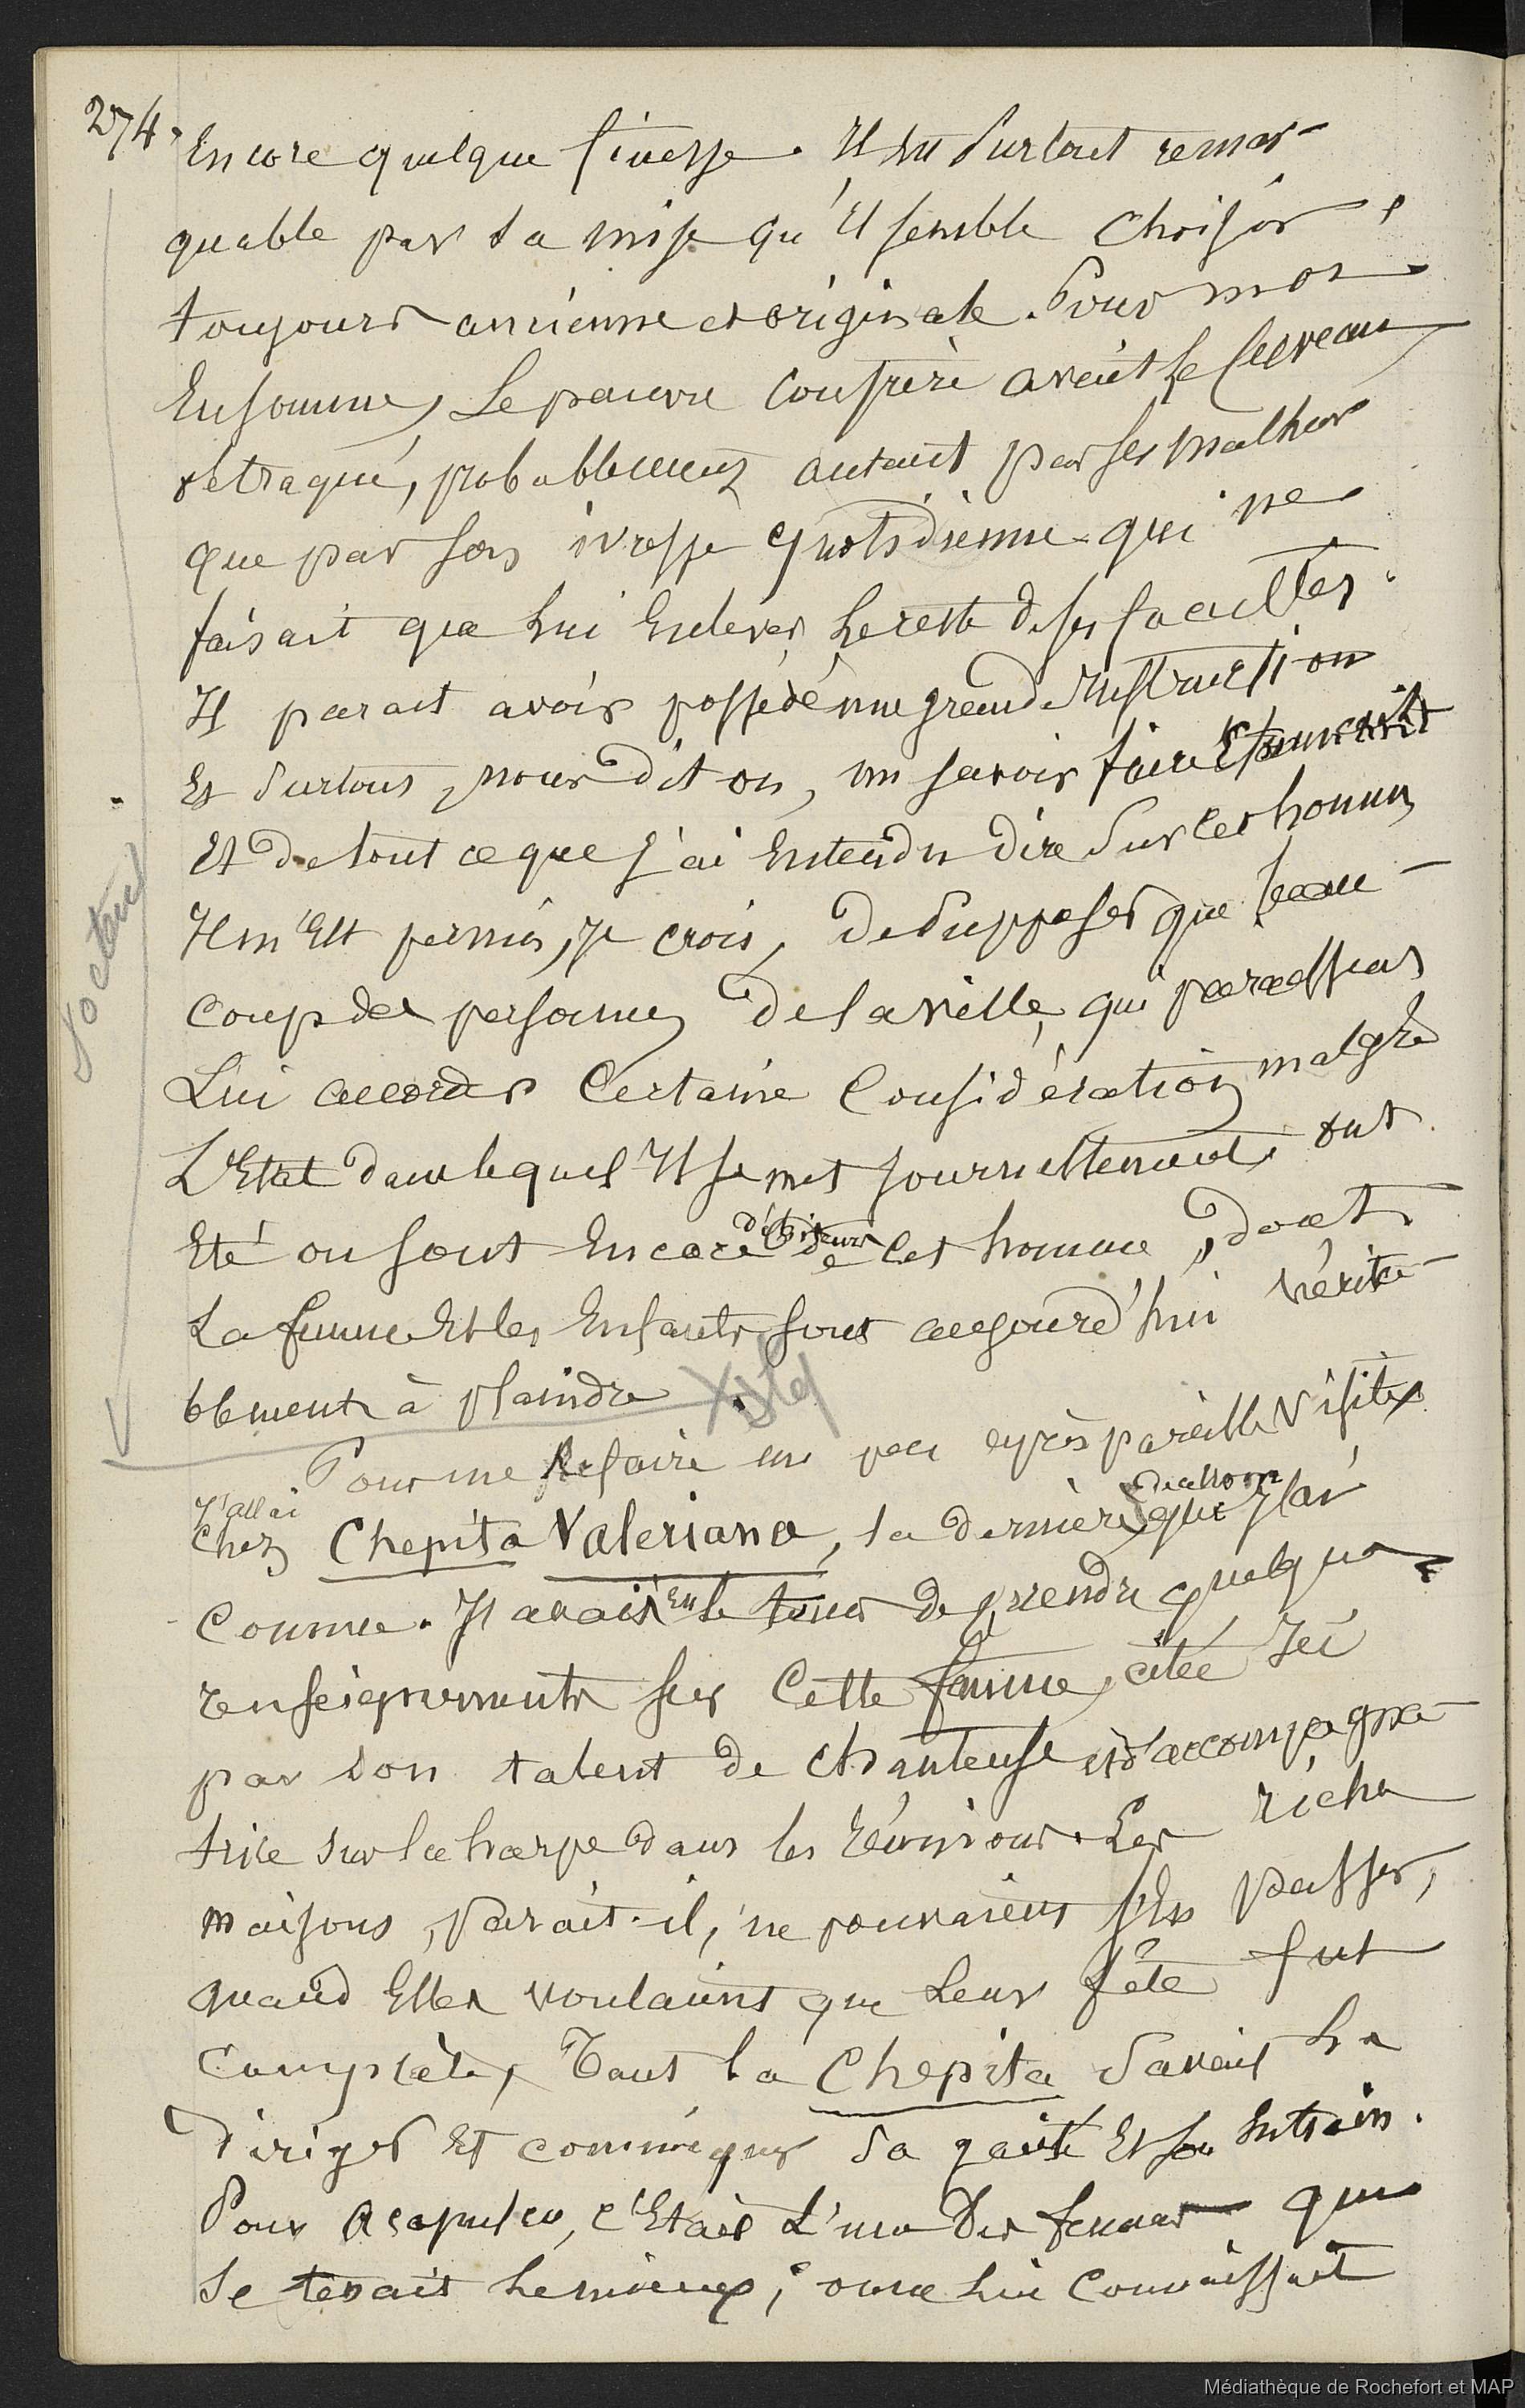 274.
Encore quelque finesse. Il est surtout remar-
quable par sa mise qu'il semble choisir
toujours ancienne et originale. Pour moi
En somme, Le pauvre confrère avait le cerveau
détraqué, probablement autant par ses malheur
que par son ivresse quotidienne qui ne
faisait que lui Enlever le reste de ses facultés.
Il parait avoir possédé une grande Instruction
Et surtout, nous dit on, un savoir faire
Et de tout ce que j'ai Entendu dire sur cet homme
Il m'est permis, je crois, de supposer que beau-
coup des personnes de la ville, qui paraissent
Lui accorder Certaine Considération malgré
L'Etat dans lequel Il se met journellement, ont
Eté ou sont Encore débiteurs de cet homme, dont
La femme Et les Enfants sont aujourd'hui vérita-
blement à plaindre.
Pour me Refaire un peu après pareille visite
J'allai
chez Chepita Valeriana, la dernière que J'ai
connue. J'avais eu le tems de prendre quelque
renseignements sur Cette femme, citée Ici
par son talent de chanteuse et d'accompagna-
trice sur la harpe dans les réunions. Les riche
maisons, parait-il, ne pouvaient s'en passer,
quand Elles voulaient que Leur fête fut
complète, Tant la Chepita savait La
diriger Et communiquer sa gaité Et son Entrain.
Pour Acapulco, c'Etait L'une des femmes qui
se tenait le mieux; on ne lui connaissait
docteur